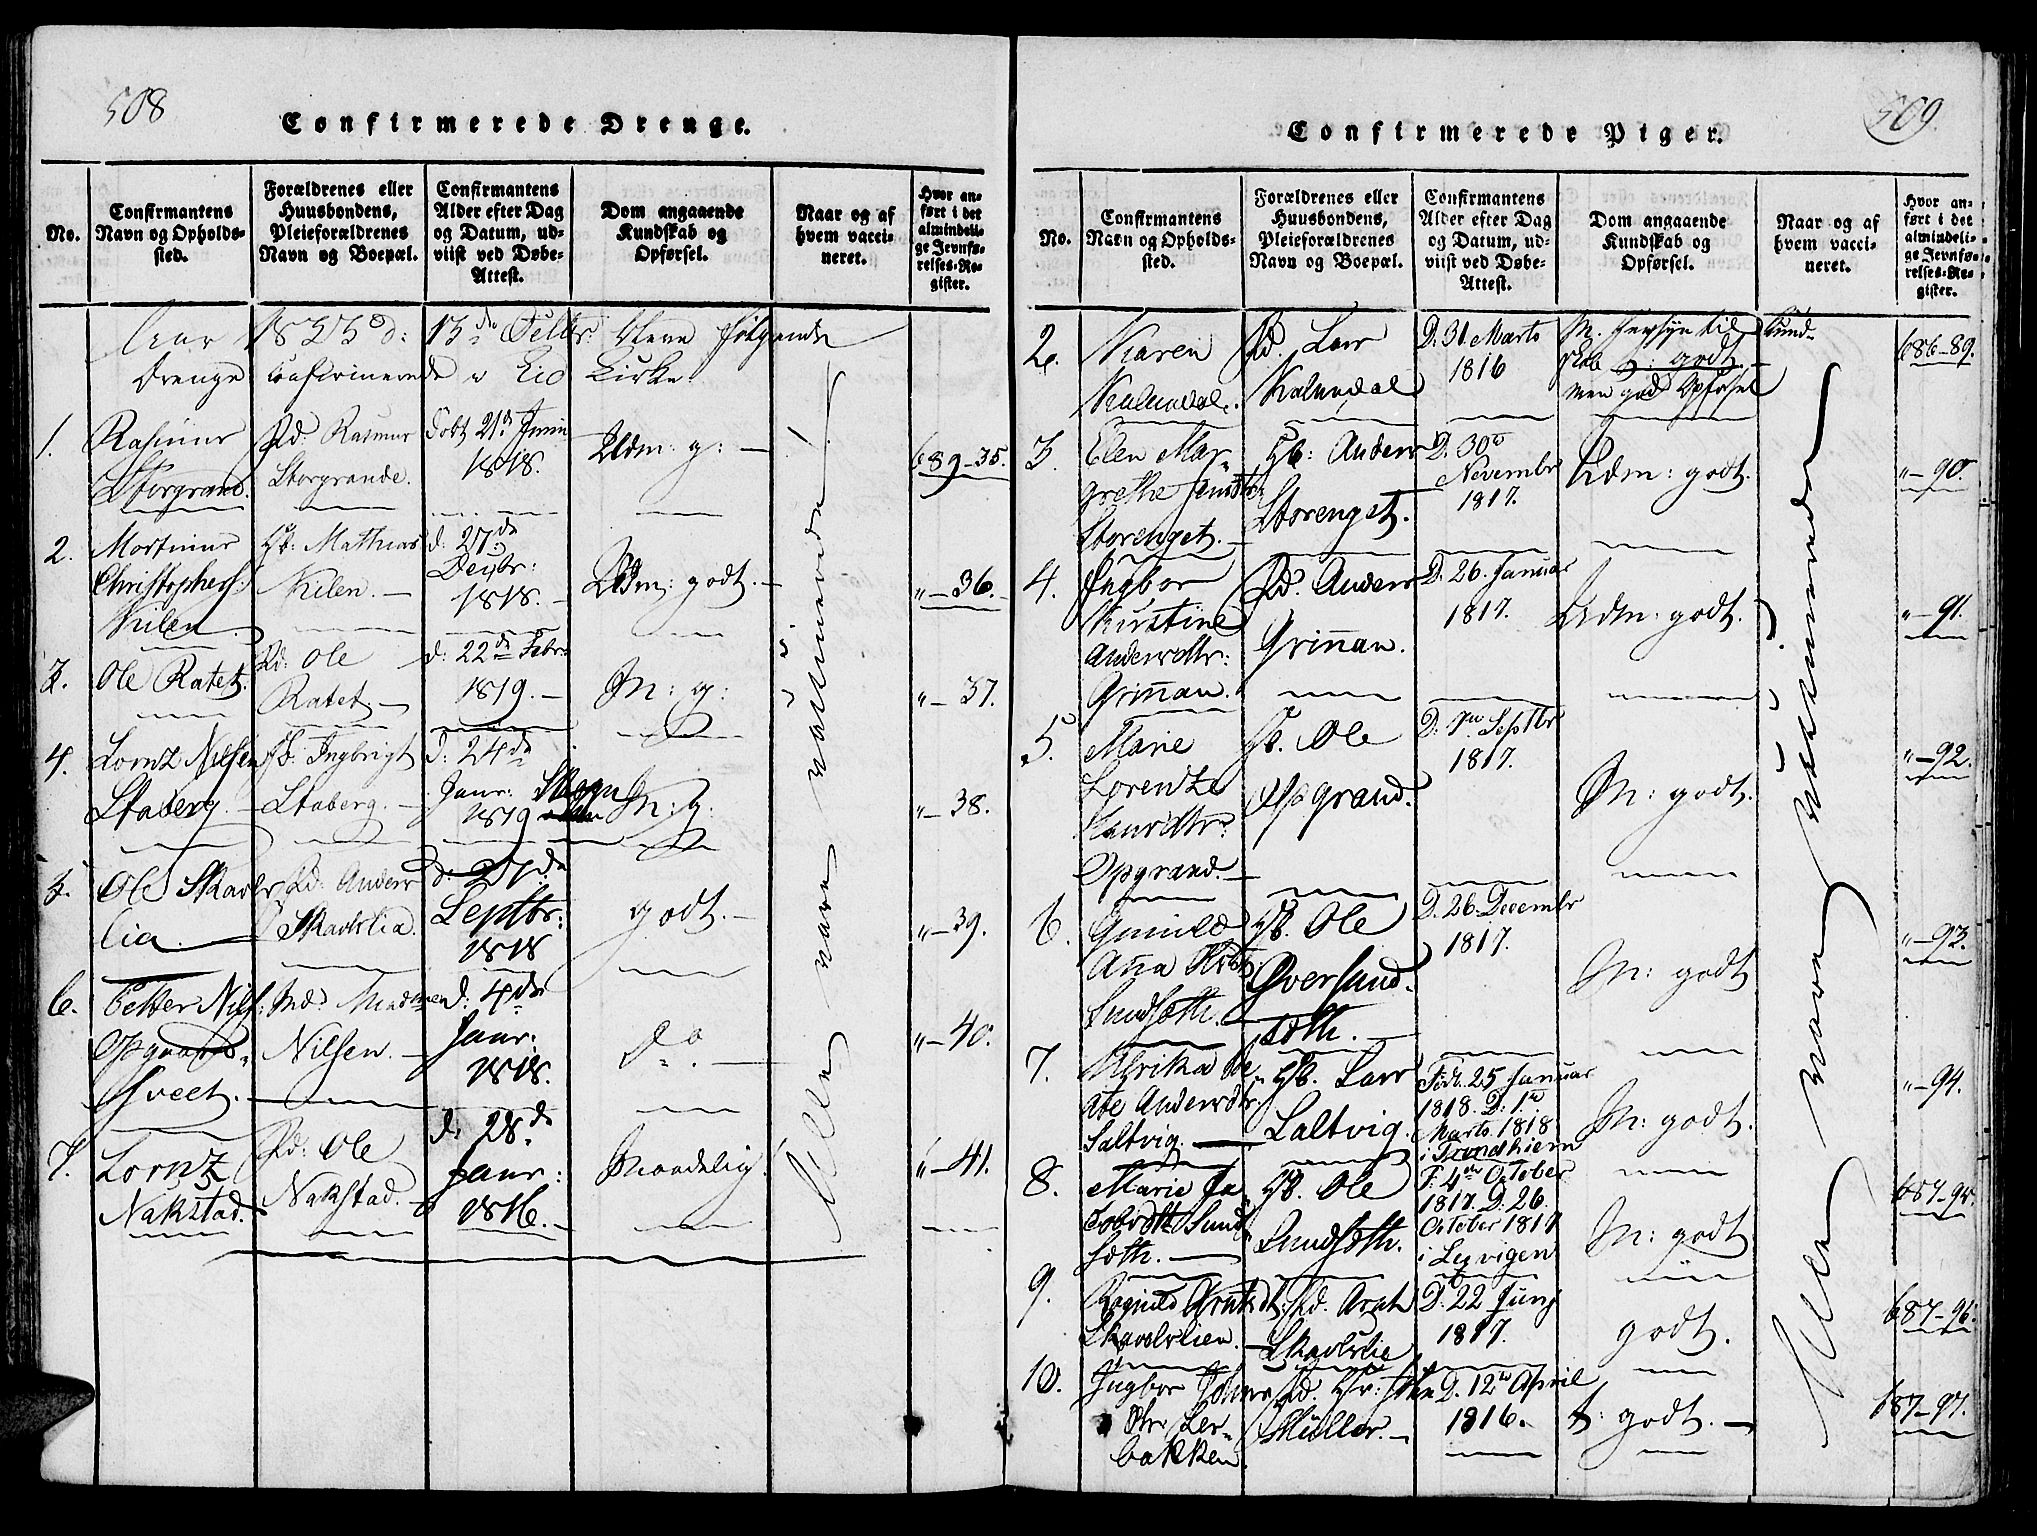 508
Confirmerede Drenge.
No.
Confirmantens
Navn og Opholds-
sted.
Forældrenes eller
Huusbondens,
Pleieforældrenes
Navn og Boepæl.
Confirmantens
Alder efter Dag
og Datum, ud-
viist ved Døbe-
Attest.
Dom angaaende
Kundskab og
Opførsel.
Naar og af
hvem vacci-
neret.
Hvor an-
ført i det
almindeli-
ge Jevnfø-
relses-Re-
gister.
Aar 1833 d: 13de Octbr: bleve følgende
Drenge confirmerede i Eid Kirke.
1.
Rasmus
Storgrand.
Fd: Rasmus
Storgrande.
Døbt 21de Junii
1818.
Udm: g: —
689-35.
2.
Mortinus
Christophers:
Kilen
Hb: Mathias
Kilen. —
d: 27de
Decbr:
1818. —
Udm: godt. —
"-36.
3.
Ole Ratet.
Fd: Ole
Ratet —
d: 22de Febr:
1819. —
M: g:
"-37.
4.
Lorntz Nilsen
Staberg. —
Hb: Ingbrigt
Staberg. —
d: 24de
Janr:
1819
M: g:
"-38.
5.
Ole Skavls
lia.
Fd: Anders
Skavlslia.
d: 27de
Septbr:
1818
godt. —
"-39.
6.
Petter Nils:
Opgrands-
hveet. —
Md:
Nilsen. —
d: 4de
Janr:
1818.
do. —
"-40.
7.
Lorntz
Nakstad.
Fd: Ole
Nakstad. —
d: 28de
Janr:
1816. —
Maadelig.
"-41.
Alle vare vaccinerede
509.
Confirmerede Piger.
No.
Confirmantens
Navn og Opholds-
sted.
Forældrenes eller
Huusbondens,
Pleieforældrenes
Navn og Boepæl.
Confirmantens
Alder efter Dag
og Datum, ud-
viist ved Døbe-
Attest.
Dom angaaende
Kundskab og
Opførsel.
Naar og af
hvem vacci-
neret.
Hvor an-
ført i det
almindeli-
ge Jevnfø-
relses-Re-
gister.
2.
Karen
Kalvadal.
Fd. Lars
Kalvadal
D. 31. Marts
1816
M. Hensyn til Kund-
skab : godt
men god Opførsel
686-89.
3.
Elen Mar-
grethe Jensdtr:
Storenget. —
Hb: Anders
Storenget.
D. 30te
Novembr
1817.
Udm: godt.
"-90.
4.
Ingbor
Kirstine
Andersdtr:
Grinnan.
Fd. Anders
Grinnan.
D. 26. Januar
1817.
Udm: godt.
"-91.
5.
Marie
Lorentze
Hansdtr:
Opgrand. —
Hb. Ole
Opgrand.
D. 7de Septbr
1817.
M: godt.
"-92.
6.
Gunild
Ana
Sundsæth. —
Hb. Ole
Oversund-
sæth. —
D. 26. Decembr
1817.
M: godt
"-93.
7.
Ulrika Be-
ate Andersdtr
Saltvig. —
Hb. Lars
Saltvig.
Født. 25 Januar
1818. D: 1te
Marts 1818
i Trondhiem
M: godt.
"-94.
8.
Marie Ja-
cobsdtr Sund-
sæth. —
Hb. Ole
Sundsæth.
F. 4de October
1817. D. 26
October 1817
i Lexvigen
M: godt
687-95.
9.
Ragnild Arntsdt:
Skavlslien.
Fd. Arnt
Skavlslie
D. 22 Junj
1817.
godt.
687-96.
10.
Ingbor Johns
dtr Ler-
bakken.
Fd. Hr: John
Müller. —
D. 12te April
1816.
t: godt. —
687-97.
Alle vare vaccinerede